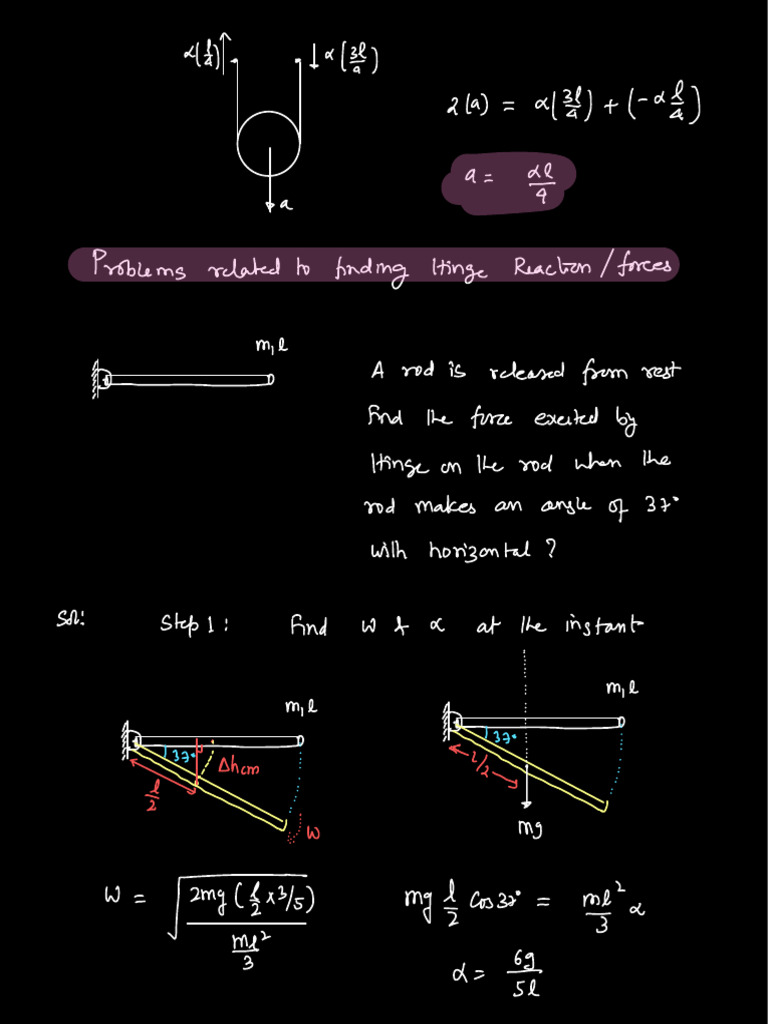 α(l/4) ↑ ↓ α(3l/4)
2(a) = α(3l/4) + (-α l/4)
a = αl/4
a
Problems related to finding Hinge Reaction/forces
m, l
A rod is released from rest
find the force exerted by
Hinge on the rod when the
rod makes an angle of 37°
with horizontal ?
Sol: Step 1: find ω & α at the instant
m, l
m, l
37°
Δhcm
l/2
ω
37°
l/2
mg
ω = √(2mg(l/2 × 3/5) / (ml²/3))
mg l/2 Cos37° = ml²/3 α
α = 6g/5l